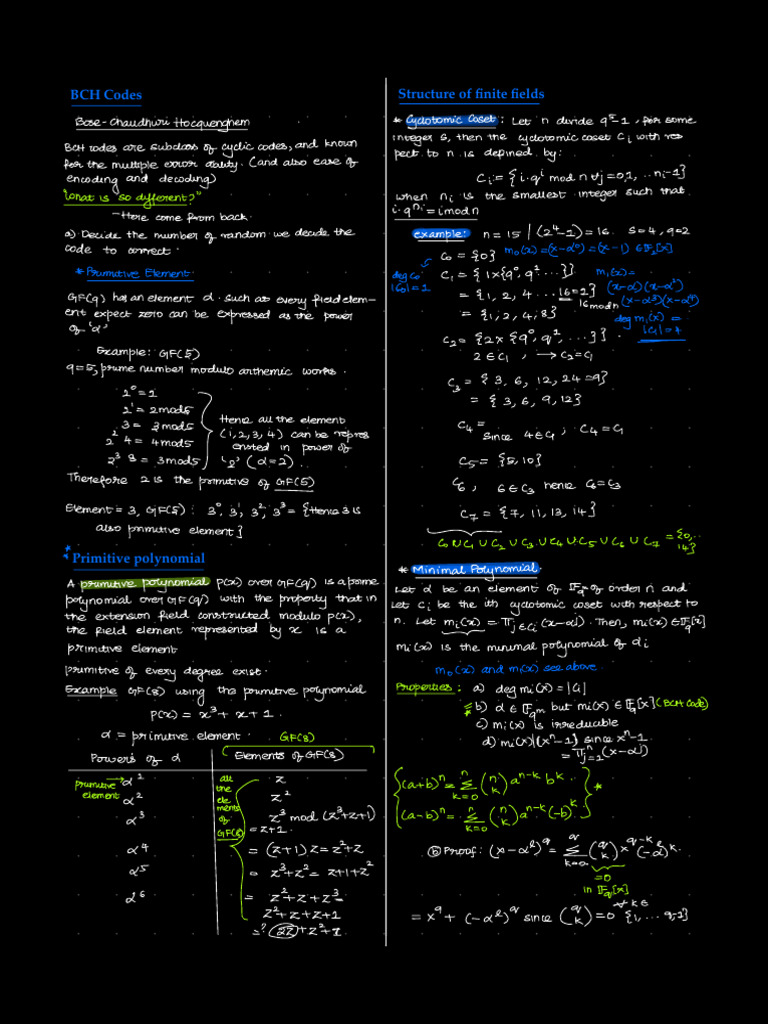 BCH Codes
Bose-Chaudhiuri Hocquenghem
BCH codes are subclass of cyclic codes, and known
for the multiple error ability. (and also ease of
encoding and decoding)
"What is so different?"
- Here come from back.
a) Decide the number of random we decide the
code to correct.
* Primitive Element
GF(q) has an element α. such at every field elem-
ent expect zero can be expressed as the power
of 'α'
Example: GF(5)
q=5, prime number modulo arthemic works.
2^0 = 1
2^1 = 2 mod 5
3 = 3 mod 5
2^2 4 = 4 mod 5
2^3 8 = 3 mod 5
Hence all the element
(1,2,3,4) can be repres
ensted in power of
'2' (α=2).
Therefore 2 is the primitive of GF(5)
Element = 3, GF(5): 3^0, 3^1, 3^2, 3^3 = {Hence 3 is
also primitive element}
* Primitive polynomial
A primitive polynomial p(x) over GF(q) is a prime
polynomial over GF(q) with the property that in
the extension field constructed modulo p(x),
the field element represented by x is a
primitive element
primitive of every degree exist.
Example GF(8) using the primitive polynomial
p(x) = x^3 + x + 1.
α = primitive element. GF(8)
Powers of α | Elements of GF(8)
primitive element → α^1 | z
α^2 | z^2
α^3 | z^3 mod (z^3+z+1)
= z+1.
α^4 | = (z+1) z = z^2+z
α^5 | = z^3+z^2 = z+1+z^2
α^6 | = z^2+z+z^3
z^2+z+z+1
=? 2z+z^2+1
all
the
ele
ments
of
GF(8)
Structure of finite fields
* Cyclotomic Coset: Let n divide q^s-1, for some
integer s, then the cyclotomic coset Ci with res
pect to n is defined by:
Ci := {i·q^j mod n ∀j=0,1, .. ni-1}
when ni is the smallest integer such that
i·q^ni = i mod n
example: n=15 / (2^4-1)=16. s=4, q=2
C0 = {0} m0(x)=(x-α^0)=(x-1) ∈ F2[x]
deg C0
|C0|=1
C1 = {1x{q^0, q^1 ...}}
= {1, 2, 4 ... 16=1}
16 mod n
= {1, 2, 4, 8}
m1(x)=
(x-α)(x-α^2)
(x-α^3)(x-α^4)
deg m1(x) =
|C1|=4
C2 = {2x {q^0, q^1, ...}}.
2 ∈ C1, → C2=C1
C3 = {3, 6, 12, 24=9}
= {3, 6, 9, 12}
C4 =
since 4∈C1; C4=C1
C5 = {5, 10}
C6, 6∈C3 hence C6=C3
C7 = {7, 11, 13, 14}
C0 ∪ C1 ∪ C2 ∪ C3 ∪ C4 ∪ C5 ∪ C6 ∪ C7 = {0, 14}
* Minimal Polynomial
Let α be an element of Fq of order n and
let Ci be the ith cyclotomic coset with respect to
n. Let mi(x) = Πj∈Ci (x-αj). Then, mi(x) ∈ Fq[x]
mi(x) is the minimal polynomial of αi
m0(x) and m1(x) see above.
Properties: a) deg mi(x) = |Ci|
* b) α ∈ Fq^m but mi(x) ∈ Fq[x] (BCH Code)
c) mi(x) is irreducable
d) mi(x)|(x^n-1) since x^n-1
= Π^n j=1 (x-αj)
(a+b)^n = Σ^n k=0 (n k) a^n-k b^k
(a-b)^n = Σ^n k=0 (n k) a^n-k (-b)^k *
b Proof: (x-α^l)^q = Σ^q k=0 (q k) x^q-k (-α^l)^k.
=0
in Fq[x]
= x^q + (-α^l)^q since (q k) = 0 ∀ k∈ {1, ... q-1}